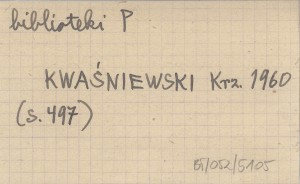 biblioteki P
KWAŚNIEWSKI Krz. 1960
(s. 497)
BI/052/5105